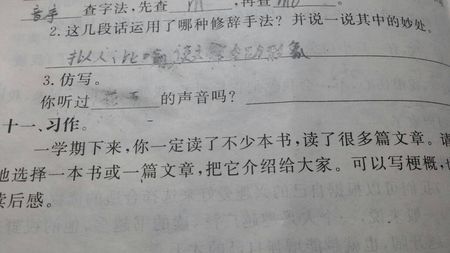 音序 查字法,先查 ,再查
2.这几段话运用了哪种修辞手法?并说一说其中的妙处。
拟人、比喻,使文章生动形象
3.仿写。
你听过 的声音吗?
十一、习作。
一学期下来,你一定读了不少本书,读了很多篇文章。请
地选择一本书或一篇文章,把它介绍给大家。可以写梗概,也
读后感。